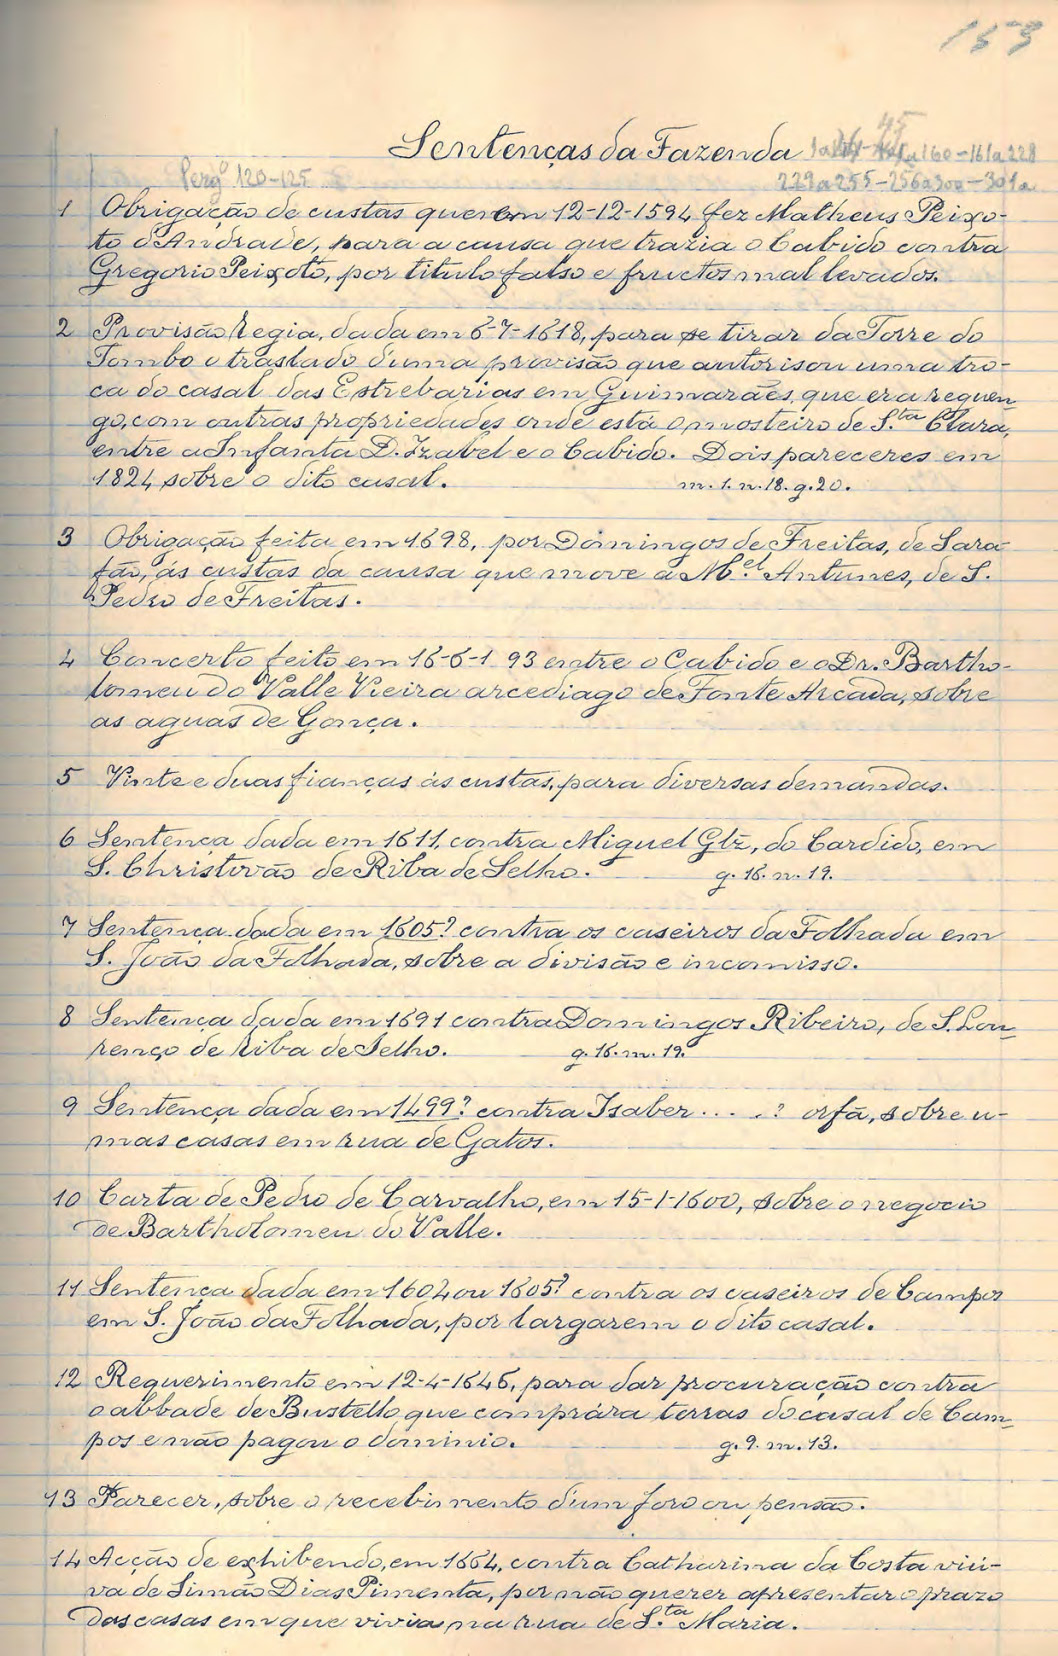 153
Sentenças da Fazenda
45
a 160-161 a 228
Pergº 120-125
229 a 255-256 a 300-301 a
1 Obrigação de custas que em 12-12-1594 fez Matheus Peixo-
to d'Andrade, para a causa que trazia o Cabido contra
Gregorio Peixoto, por titulo falso e fructos mal levados.
2 Provisão Regia, dada em 6-7-1618, para se tirar da Torre do
Tombo o traslado duma provisão que autorisou uma tro-
ca do casal das Estrebarias em Guimarães, que era reguen-
go, com outras propriedades onde está o mosteiro de S.ta Clara,
entre a Infanta D. Izabel e o Cabido. Dois pareceres em
1824 sobre o dito casal. m. 1. n. 18. g. 20.
3 Obrigação feita em 1698, por Domingos de Freitas, de Sara-
fão, ás custas da causa que move a M.el Antunes, de S.
Pedro de Freitas.
4 Concerto feito em 16-6-1 93 entre o Cabido e o Dr. Bartho-
lomeu do Valle Vieira arcediago de Fonte Arcada, sobre
as aguas de Gonça.
5 Vinte e duas fianças ás custas, para diversas demandas.
6 Sentença dada em 1611, contra Miguel Glz, do Cardido, em
S. Christovão de Riba de Selho. g. 16. m. 19.
7 Sentença dada em 1605? contra os caseiros da Folhada em
S. João da Folhada, sobre a divisão e incomisso.
8 Sentença dada em 1691 contra Domingos Ribeiro, de S. Lou-
renço de Riba de Selho. g. 16. m. 19.
9 Sentença dada em 1499? contra Isaber . . . . .? orfã, sobre u-
mas casas em rua de Gatos.
10 Carta de Pedro de Carvalho, em 15-1-1600, sobre o negocio
de Bartholomeu do Valle.
11 Sentença dada em 1604 ou 1605? contra os caseiros de Campos
em S. João da Folhada, por largarem o dito casal.
12 Requerimento em 12-4-1646, para dar procuração contra
o abbade de Bustello, que comprára terras do casal de Cam-
pos e não pagou o dominio. g. 9. m. 13.
13 Parecer, sobre o recebimento d'um foro ou pensão.
14 Acção de exhibendo, em 1664, contra Catharina da Costa viu-
va de Simão Dias Pimenta, por não querer apresentar o prazo
das casas em que vivia na rua de S.ta Maria.